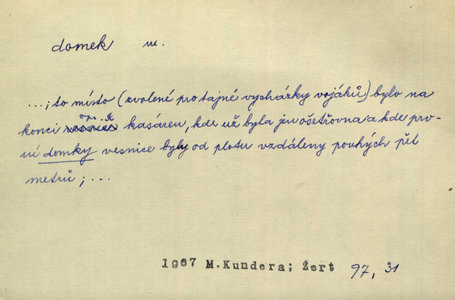 domek m.
...; to místo (zvolené pro tajné vycházky vojáků) bylo na
konci kasáren, kde už byla jen ošetřovna a kde prv-
ní domky vesnice byly od plotu vzdáleny pouhých pět
metrů; ...
1967 M.Kundera; Žert 97, 31